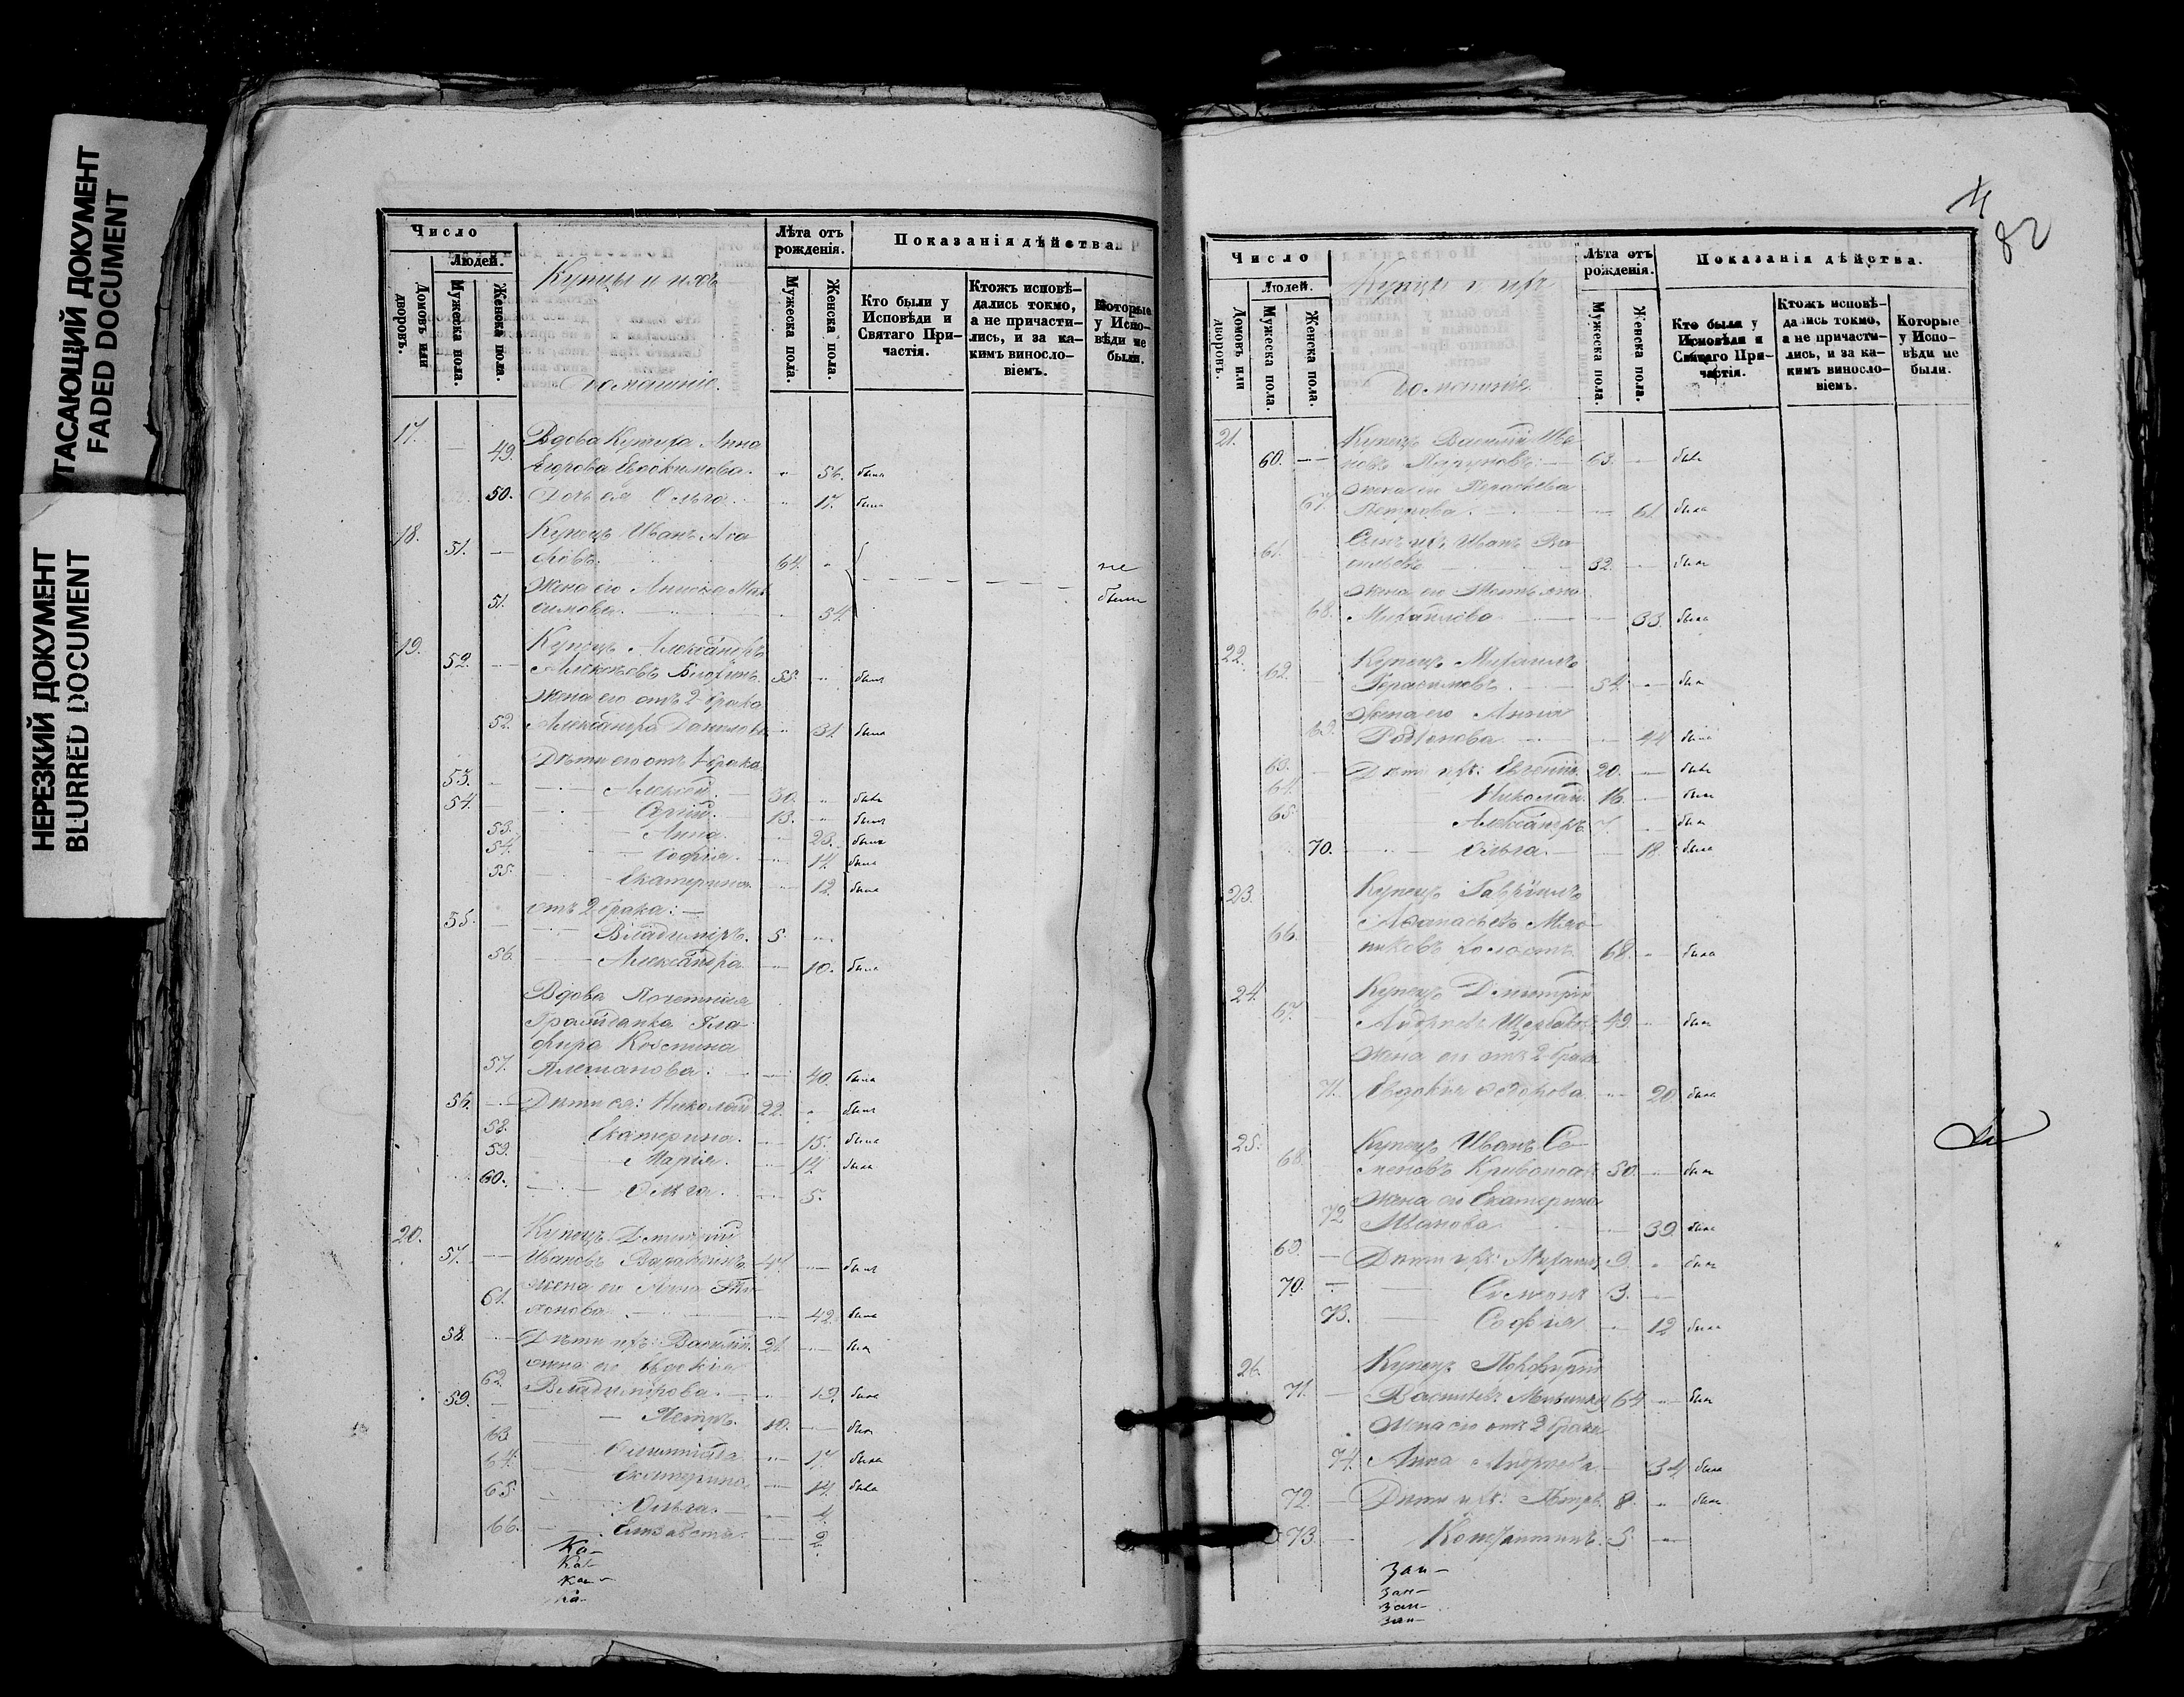 УГАСАЮЩИЙ ДОКУМЕНТ
FADED DOCUMENT
НЕРЕЗКИЙ ДОКУМЕНТ
BLURRED DOCUMENT
Число
Людей.
Домовъ или дворовъ.
Мужеска пола.
Женска пола.
Купцы и ихъ
домашніе.
Лѣта отъ рожденія.
Мужеска пола.
Женска пола.
Показанія дѣйства
Кто были у Исповѣди и Святаго Причастія.
Ктожъ исповѣдались токмо, а не причастились, и за какимъ винословіемъ.
Которые у Исповѣди не были.
17. Вдова Купчиха Анна
49. Егорова Евдокимова. 56. была
50. Дочь ея Ольга. 17. была
18. Купецъ Иванъ Ага
51. фовъ. 64. не
Жена его Анисья Мак
51. симова. 54. были
19. Купецъ Александръ
52. Алексѣевъ 55. былъ
Жена его отъ 2 брака
52. Александра Данилова 31. была
Дѣти его отъ 1 брака
53. Алексѣй. 30. былъ
54. Сергій. 13. былъ
53. Анна. 23. была
54. Софія. 14. была
55. Екатерина 12. была
отъ 2 брака:
55. Владиміръ. 5.
56. Александра 10. была
Вдова Почетная
Гражданка Гла
фира Костина
57. Плеханова. 40. была
56. Дѣти ея: Николай 22. былъ
58. Екатерина. 15. была
59. Марія. 14. была
60. Ольга. 5.
20. Купецъ Димитрій
57. Ивановъ 47. былъ
жена его Анна Ти
61. хонова. 42. была
58. Дѣти ихъ: Василій. 21. былъ
жена его Евдокія
62. Владимірова. 19. была
59. Петръ. 10. былъ
63. Олимпіада 17. была
64. Екатерина 14. была
65. Ольга. 4.
66. Елизавета. 2.
Ка-
Ка-
Ка-
Ка-
82
Число
Людей.
Домовъ или дворовъ.
Мужеска пола.
Женска пола.
Купцы и ихъ
домашніе.
Лѣта отъ рожденія.
Мужеска пола.
Женска пола.
Показанія дѣйства.
Кто были у Исповѣди и Святаго Причастія.
Ктожъ исповѣдались токмо, а не причастились, и за какимъ винословіемъ.
Которые у Исповѣди не были.
21. Купецъ Василій Ива
60. новъ 63. былъ
жена его Параскева
67. Петрова. 61. была
Сынъ ихъ Иванъ Ва
61. сильевъ 32. былъ
жена его
68. Михаилова 33. была
22. Купецъ Михаилъ
62. Герасимовъ. 54. былъ
Жена его Анна
69. Родіонова 44. была
63. Дѣти ихъ: Евгеній. 20. былъ
64. Николай. 16. былъ
65. Александръ 7. былъ
70. Ольга. 18. была
23. Купецъ Гавріилъ
Аѳанасьевъ Мяс
66. никовъ холостъ. 68. былъ
24. Купецъ Димитрій
67. Андреевъ Щербаковъ 49. былъ
жена его отъ 2 брака
71. Евдокія Ѳедорова 20. была
25. Купецъ Иванъ Се
68. меновъ Кривоносовъ 50. былъ
жена его Екатерина
72. Иванова 39. была
69. Дѣти ихъ: Михаилъ 9. былъ
70. Симеонъ 3.
73. Софія 12 была
26. Купецъ Порфирій
71. Васильевъ 64 былъ
Жена его отъ 2 брака
74. Анна Андреева 34 была
72. Дѣти ихъ: Петръ. 8. былъ
73. Константинъ. 5.
Зан-
Зан-
Зан-
Зан-